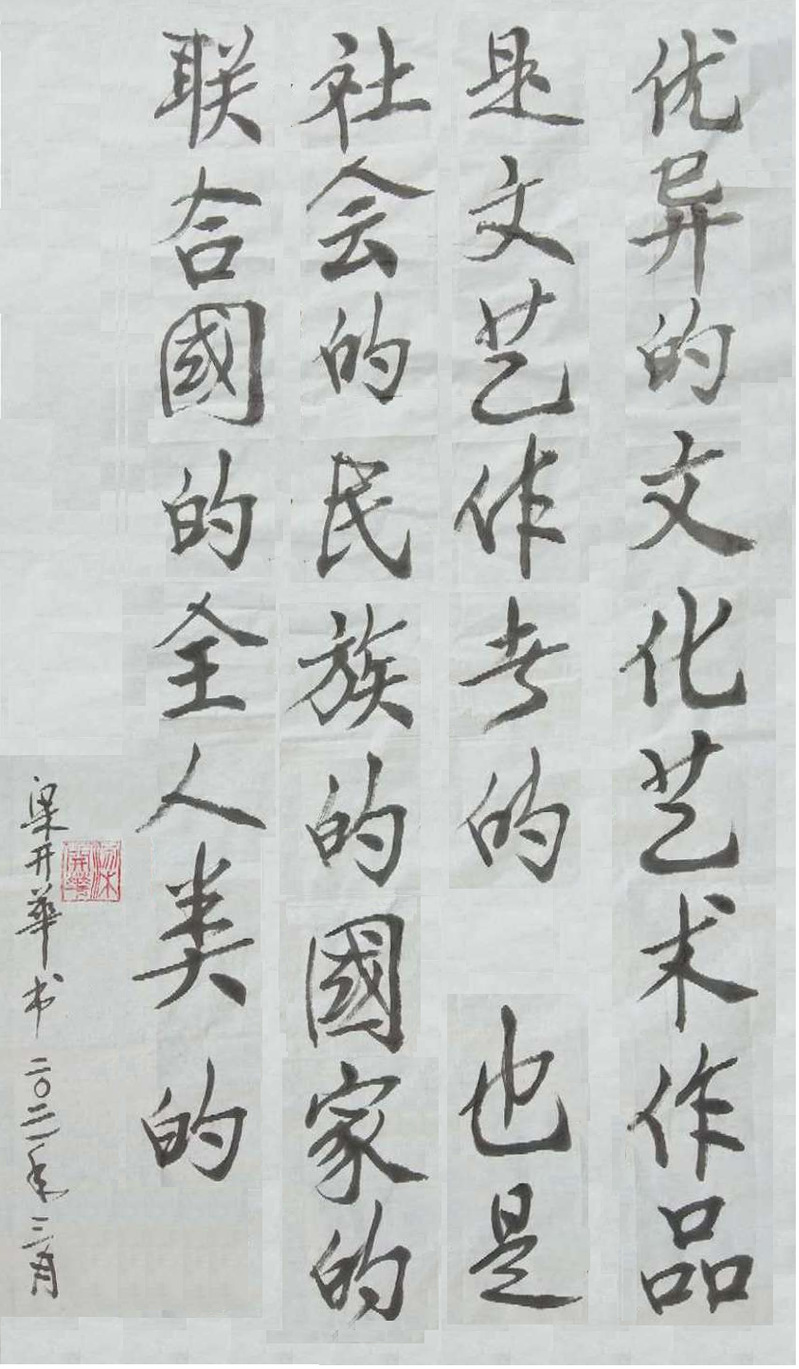 优异的文化艺术作品
是文艺作者的 也是
社会的民族的國家的
联合國的全人类的
梁开華书二〇二一年三月